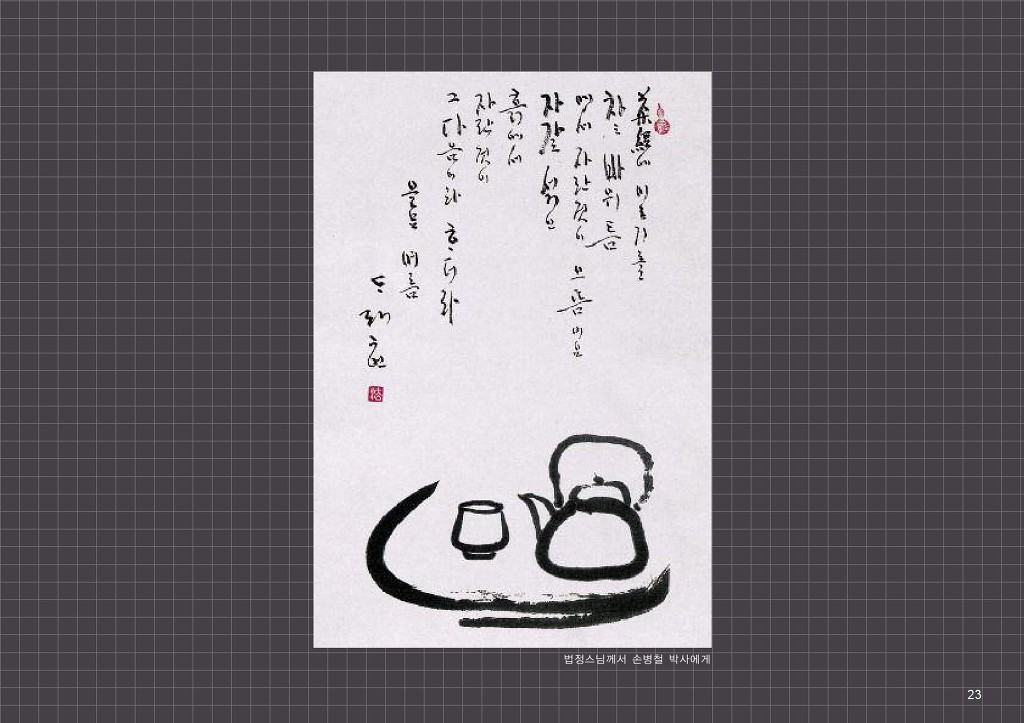 茶經에 이르기를
차는 바위틈
에서 자란것이 으뜸이요
자갈 섞인
흙에서
자란 것이
그 다음이라 하더라
여름
법정스님께서 손병철 박사에게
23